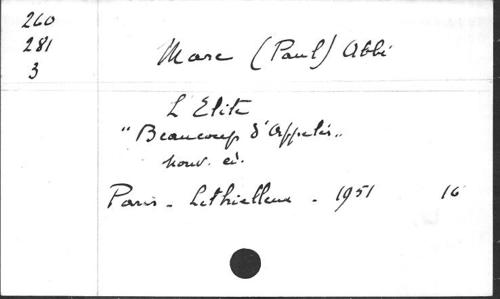 260
281
3
Marc (Paul) Abbé
L'Elite
"Beaucoup d'Appelés"
nouv. éd.
Paris - Lethielleux - 1951 16